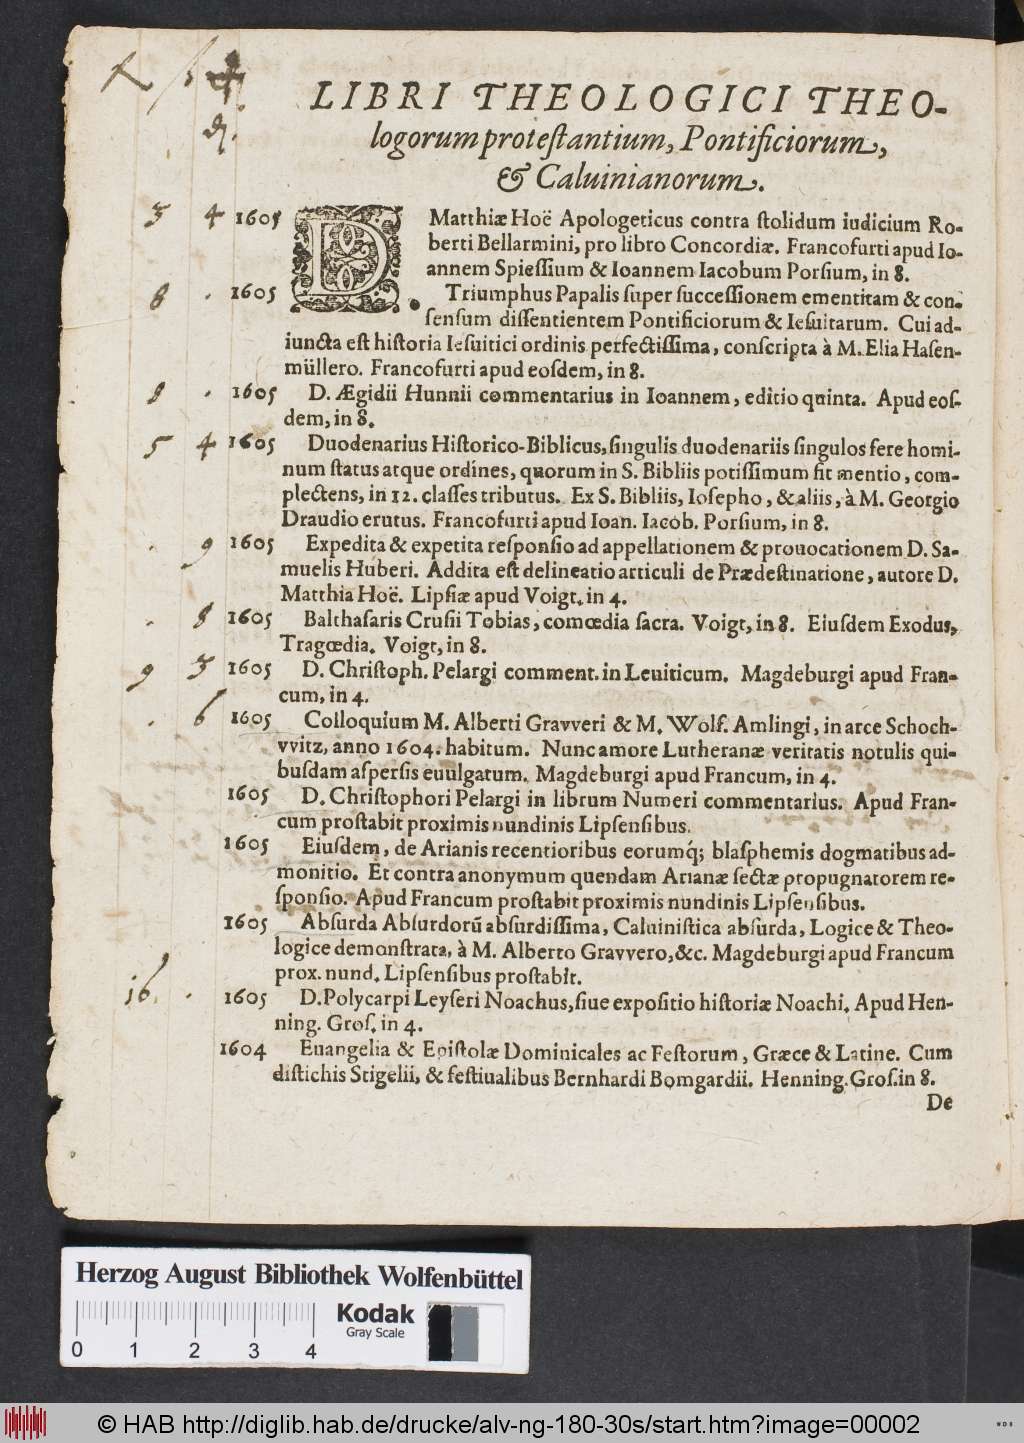 LIBRI THEOLOGICI THEO-
logorum proteſtantium, Pontificiorum,
& Caluinianorum.
3 4 1605 D. Matthiæ Hoë Apologeticus contra ſtolidum iudicium Ro-
berti Bellarmini, pro libro Concordiæ. Francofurti apud Io-
annem Spieſſium & Ioannem Iacobum Porſium, in 8.
8 . 1605 Triumphus Papalis ſuper ſucceſſionem ementitam & con-
ſenſum diſſentientem Pontificiorum & Ieſuitarum. Cui ad-
iuncta eſt hiſtoria Ieſuitici ordinis perfectiſſima, conſcripta à M. Elia Haſen-
müllero. Francofurti apud eoſdem, in 8.
8 . 1605 D. Ægidii Hunnii commentarius in Ioannem, editio quinta. Apud eoſ-
dem, in 8.
5 4 1605 Duodenarius Hiſtorico-Biblicus, ſingulis duodenariis ſingulos fere homi-
num ſtatus atque ordines, quorum in S. Bibliis potiſſimum fit mentio, com-
plectens, in 12. claſſes tributus. Ex S. Bibliis, Ioſepho, & aliis, à M. Georgio
Draudio erutus. Francofurti apud Ioan. Iacob. Porſium, in 8.
. 9 1605 Expedita & expetita reſponſio ad appellationem & prouocationem D. Sa-
muelis Huberi. Addita eſt delineatio articuli de Prædeſtinatione, autore D.
Matthia Hoë. Lipſiæ apud Voigt. in 4.
. 8 1605 Balthaſaris Cruſii Tobias, comœdia ſacra. Voigt, in 8. Eiuſdem Exodus,
Tragœdia. Voigt, in 8.
9 3 1605 D. Chriſtoph. Pelargi comment. in Leuiticum. Magdeburgi apud Fran-
cum, in 4.
. 6 1605 Colloquium M. Alberti Gravveri & M. Wolf. Amlingi, in arce Schoch-
vvitz, anno 1604. habitum. Nunc amore Lutheranæ veritatis notulis qui-
buſdam aſperſis euulgatum. Magdeburgi apud Francum, in 4.
1605 D. Chriſtophori Pelargi in librum Numeri commentarius. Apud Fran-
cum proſtabit proximis nundinis Lipſenſibus.
1605 Eiuſdem, de Arianis recentioribus eorumq́; blaſphemis dogmatibus ad-
monitio. Et contra anonymum quendam Arianæ ſectæ propugnatorem re-
ſponſio. Apud Francum proſtabit proximis nundinis Lipſenſibus.
1605 Abſurda Abſurdorũ abſurdiſſima, Caluiniſtica abſurda, Logice & Theo-
logice demonſtrata, à M. Alberto Gravvero, &c. Magdeburgi apud Francum
prox. nund. Lipſenſibus proſtabit.
16. . 1605 D. Polycarpi Leyſeri Noachus, ſiue expoſitio hiſtoriæ Noachi. Apud Hen-
ning. Groſ. in 4.
1604 Euangelia & Epiſtolæ Dominicales ac Feſtorum, Græce & Latine. Cum
diſtichis Stigelii, & feſtiualibus Bernhardi Bomgardii. Henning. Groſ. in 8.
De
Herzog August Bibliothek Wolfenbüttel
Kodak
Gray Scale
0 1 2 3 4
© HAB http://diglib.hab.de/drucke/alv-ng-180-30s/start.htm?image=00002